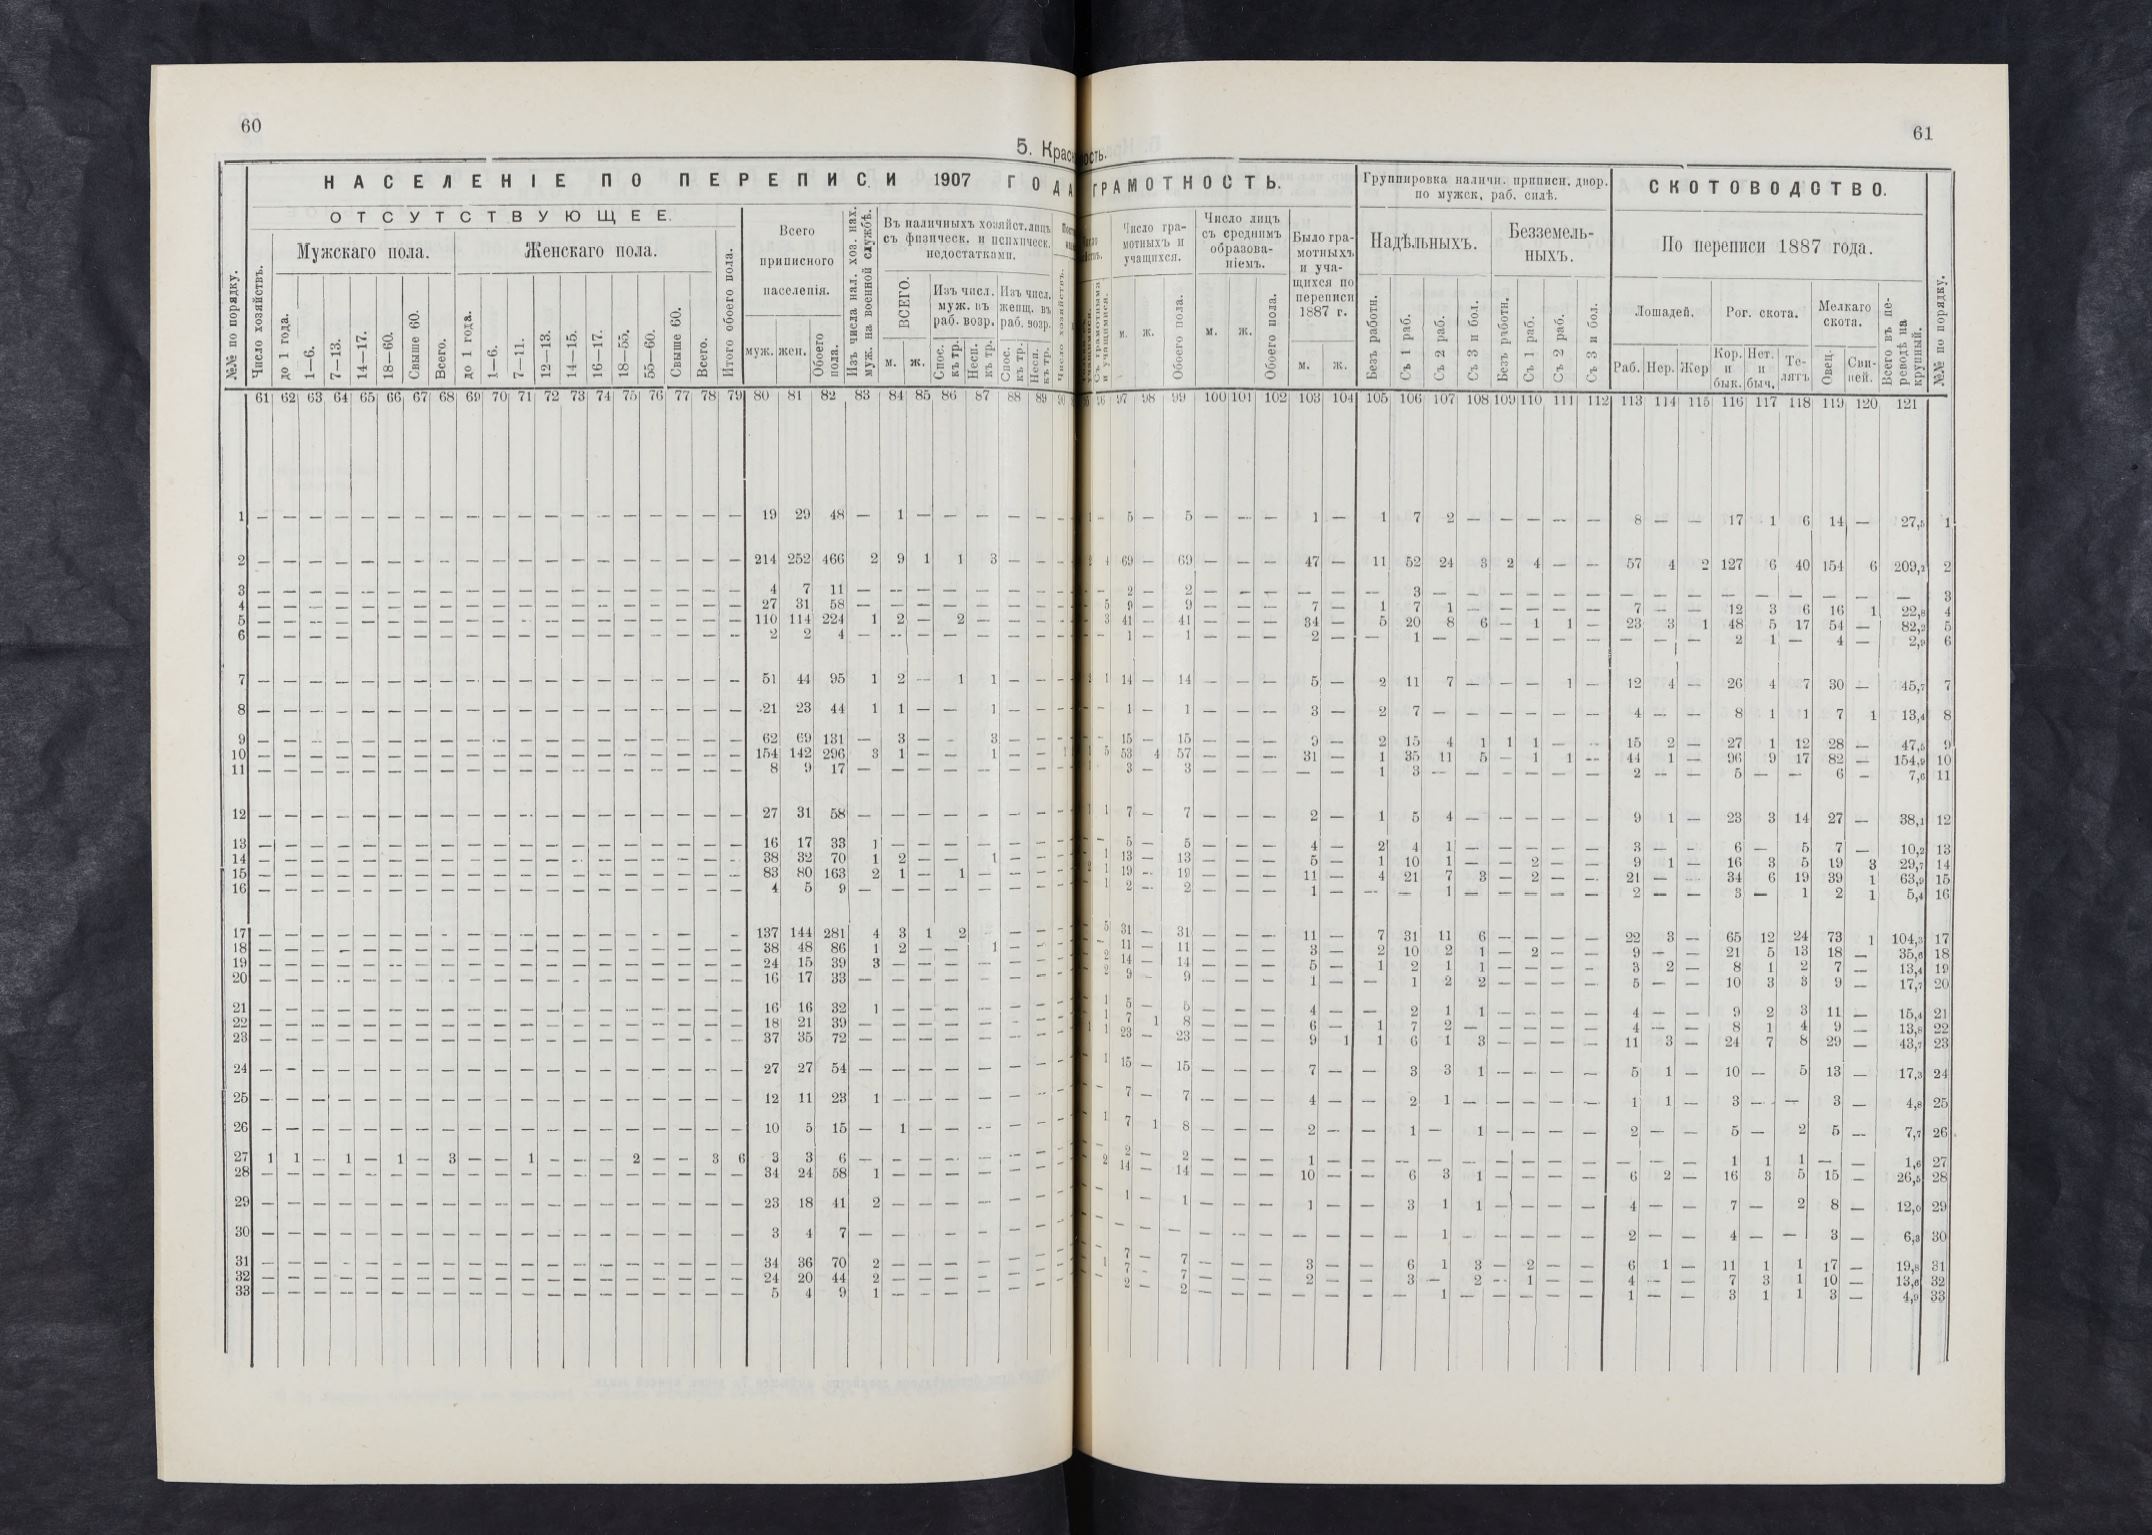 60
61
5. Крас
ость.
НАСЕЛЕНІЕ ПО ПЕРЕПИСИ 1907 ГОДА
ГРАМОТНОСТЬ.
Группировка наличн. приписн. двор. по мужск. раб. силѣ.
СКОТОВОДСТВО.
№№ по порядку.
ОТСУТСТВУЮЩЕЕ.
Число хозяйствъ.
Мужскаго пола.
до 1 года.
1—6.
7—13.
14—17.
18—60.
Свыше 60.
Всего.
Женскаго пола.
до 1 года.
1—6.
7—11.
12—13.
14—15.
16—17.
18—55.
55—60.
Свыше 60.
Всего.
Итого обоего пола.
Всего приписного населенія.
муж.
жен.
Обоего пола.
Изъ числа нал. хоз. нах. муж. на военной службѣ.
Въ наличныхъ хозяйст. лицъ съ физическ. и психическ. недостатками.
ВСЕГО.
м.
ж.
Изъ числ. муж. въ раб. возр.
Спос. къ тр.
Несп. къ тр.
Изъ числ. женщ. въ раб. возр.
Спос. къ тр.
Несп. къ тр.
Число хозяйствъ.
Съ грамотными и учащимися.
Число грамотныхъ и учащихся.
м.
ж.
Обоего пола.
Число лицъ съ среднимъ образованіемъ.
м.
ж.
Обоего пола.
Было грамотныхъ и учащихся по переписи 1887 г.
м.
ж.
Надѣльныхъ.
Безъ работн.
Съ 1 раб.
Съ 2 раб.
Съ 3 и бол.
Безземельныхъ.
Безъ работн.
Съ 1 раб.
Съ 2 раб.
Съ 3 и бол.
По переписи 1887 года.
Лошадей.
Раб.
Нер.
Жер
Рог. скота.
Кор. и бык.
Нет. и быч.
Телятъ
Мелкаго скота.
Овец.
Свиней.
Всего въ переводѣ на крупный.
№№ по порядку.
61 62 63 64 65 66 67 68 69 70 71 72 73 74 75 76 77 78 79 80 81 82 83 84 85 86 87 88 89 90
96 97 98 99 100 101 102 103 104 105 106 107 108 109 110 111 112 113 114 115 116 117 118 119 120 121
1 — — — — — — — — — — — — — — — — — — — 19 29 48 — 1 — — — — — — 5 — 5 — — — 1 — 1 7 2 — — — — — 8 — — 17 1 6 14 — 27,5 1
2 — — — — — — — — — — — — — — — — — — — 214 252 466 2 9 1 1 3 — — 4 69 — 69 — — — 47 — 11 52 24 3 2 4 — — 57 4 2 127 6 40 154 6 209,2 2
3 — — — — — — — — — — — — — — — — — — — 4 7 11 — — — — — — — — 2 — 2 — — — — — — 3 — — — — — — — — — — — — — — — 3
4 — — — — — — — — — — — — — — — — — — — 27 31 58 — — — — — — — 5 9 — 9 — — — 7 — 1 7 1 — — — — — 7 — — 12 3 6 16 1 22,8 4
5 — — — — — — — — — — — — — — — — — — — 110 114 224 1 2 — 2 — — — 3 41 — 41 — — — 34 — 5 20 8 6 — 1 1 — 23 3 1 48 5 17 54 — 82,2 5
6 — — — — — — — — — — — — — — — — — — — 2 2 4 — — — — — — — — 1 — 1 — — — 2 — — 1 — — — — — — — — — 2 1 — 4 — 2,9 6
7 — — — — — — — — — — — — — — — — — — — 51 44 95 1 2 — 1 1 — — 1 14 — 14 — — — 5 — 2 11 7 — — — 1 — 12 4 — 26 4 7 30 — 45,7 7
8 — — — — — — — — — — — — — — — — — — — 21 23 44 1 1 — — 1 — — — 1 — 1 — — — 3 — 2 7 — — — — — — 4 — — 8 1 1 7 1 13,4 8
9 — — — — — — — — — — — — — — — — — — — 62 69 131 — 3 — — 3 — — — 15 — 15 — — — 9 — 2 15 4 1 1 1 — — 15 2 — 27 1 12 28 — 47,5 9
10 — — — — — — — — — — — — — — — — — — — 154 142 296 3 1 — — 1 — — 5 53 4 57 — — — 31 — 1 35 11 5 — 1 1 — 44 1 — 96 9 17 82 — 154,9 10
11 — — — — — — — — — — — — — — — — — — — 8 9 17 — — — — — — — 3 — 3 — — — — — 1 3 — — — — — — 2 — — 5 — — 6 — 7,6 11
12 — — — — — — — — — — — — — — — — — — — 27 31 58 — — — — — — — 1 7 — 7 — — — 2 — 1 5 4 — — — — — 9 1 — 23 3 14 27 — 38,1 12
13 — — — — — — — — — — — — — — — — — — — 16 17 33 1 — — — — — — — 5 — 5 — — — 4 — 2 4 1 — — — — — 3 — — 6 — 5 7 — 10,2 13
14 — — — — — — — — — — — — — — — — — — — 38 32 70 1 2 — — 1 — — 1 13 — 13 — — — 5 — 1 10 1 — — 2 — — 9 1 — 16 3 5 19 3 29,7 14
15 — — — — — — — — — — — — — — — — — — — 83 80 163 2 1 — 1 — — — 1 19 — 19 — — — 11 — 4 21 7 3 — 2 — — 21 — — 34 6 19 39 1 63,9 15
16 — — — — — — — — — — — — — — — — — — — 4 5 9 — — — — — — — 1 2 — 2 — — — 1 — — — 1 — — — — — 2 — — 3 — 1 2 1 5,4 16
17 — — — — — — — — — — — — — — — — — — — 137 144 281 4 3 1 2 — — — 5 31 — 31 — — — 11 — 7 31 11 6 — — — — 22 3 — 65 12 24 73 1 104,3 17
18 — — — — — — — — — — — — — — — — — — — 38 48 86 1 2 — — 1 — — — 11 — 11 — — — 3 — 2 10 2 1 — 2 — — 9 — — 21 5 13 18 — 35,6 18
19 — — — — — — — — — — — — — — — — — — — 24 15 39 3 — — — — — — 2 14 — 14 — — — 5 — 1 2 1 1 — — — — 3 2 — 8 1 2 7 — 13,4 19
20 — — — — — — — — — — — — — — — — — — — 16 17 33 — — — — — — — 2 9 — 9 — — — 1 — — 1 2 2 — — — — 5 — — 10 3 3 9 — 17,7 20
21 — — — — — — — — — — — — — — — — — — — 16 16 32 1 — — — — — — 1 5 — 5 — — — 4 — — 2 1 1 — — — — 4 — — 9 2 3 11 — 15,4 21
22 — — — — — — — — — — — — — — — — — — — 18 21 39 — — — — — — — 1 7 1 8 — — — 6 — 1 7 2 — — — — — 4 — — 8 1 4 9 — 13,8 22
23 — — — — — — — — — — — — — — — — — — — 37 35 72 — — — — — — — 1 23 — 23 — — — 9 1 1 6 1 3 — — — — 11 3 — 24 7 8 29 — 43,7 23
24 — — — — — — — — — — — — — — — — — — — 27 27 54 — — — — — — — 1 15 — 15 — — — 7 — — 3 3 1 — — — — 5 1 — 10 — 5 13 — 17,3 24
25 — — — — — — — — — — — — — — — — — — — 12 11 23 1 — — — — — — — 7 — 7 — — — 4 — — 2 1 — — — — — 1 1 — 3 — — 3 — 4,8 25
26 — — — — — — — — — — — — — — — — — — — 10 5 15 — 1 — — — — — 1 7 1 8 — — — 2 — — 1 — 1 — — — — 2 — — 5 — 2 5 — 7,7 26
27 1 1 — 1 — 1 — 3 — — 1 — — — 2 — — 3 6 3 3 6 — — — — — — — — 2 — 2 — — — 1 — — — — — — — — — — — — 1 1 1 — — 1,6 27
28 — — — — — — — — — — — — — — — — — — — 34 24 58 1 — — — — — — 2 14 — 14 — — — 10 — — 6 3 1 — — — — 6 2 — 16 3 5 15 — 26,5 28
29 — — — — — — — — — — — — — — — — — — — 23 18 41 2 — — — — — — — 1 — 1 — — — 1 — — 3 1 1 — — — — 4 — — 7 — 2 8 — 12,0 29
30 — — — — — — — — — — — — — — — — — — — 3 4 7 — — — — — — — — — — — — — — — — — — 1 — — — — — 2 — — 4 — — 3 — 6,3 30
31 — — — — — — — — — — — — — — — — — — — 34 36 70 2 — — — — — — — 7 — 7 — — — 3 — — 6 1 3 — 2 — — 6 1 — 11 1 1 17 — 19,8 31
32 — — — — — — — — — — — — — — — — — — — 24 20 44 2 — — — — — — 1 7 — 7 — — — 2 — — 3 — 2 — 1 — — 4 — — 7 3 1 10 — 13,6 32
33 — — — — — — — — — — — — — — — — — — — 5 4 9 1 — — — — — — — 2 — 2 — — — — — — — 1 — — — — — 1 — — 3 1 1 3 — 4,9 33